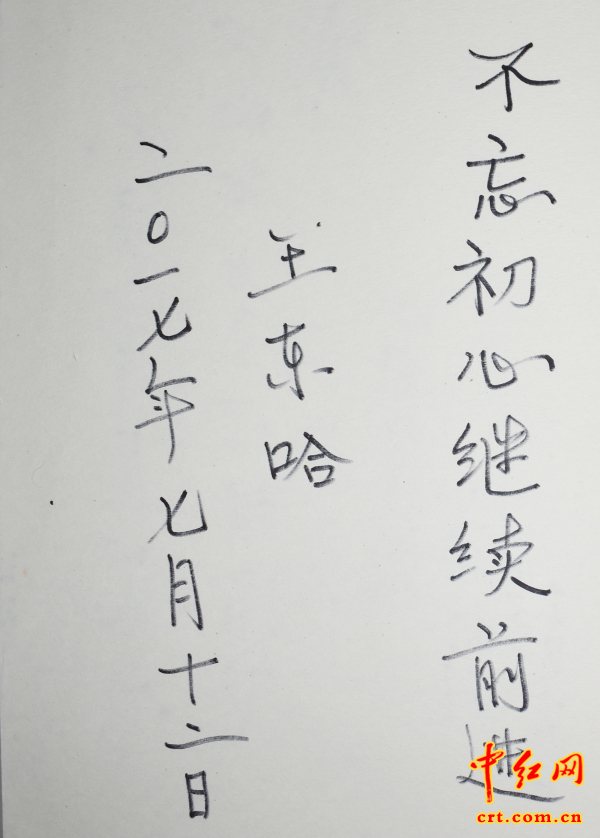 不忘初心继续前进
王东哈
二〇一七年七月十二日
中红网
crt.com.cn